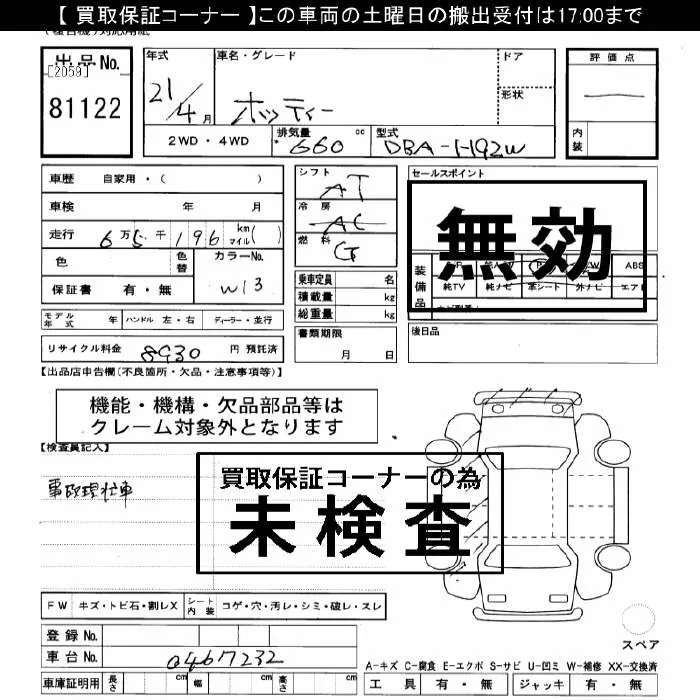 【 買取保証コーナー 】この車両の土曜日の搬出受付は17:00まで
出品No.
[2059]
81122
年式
21/4月
車名・グレード
オッティー
ドア
形状
2WD・4WD
排気量
660 cc
型式
DBA-H92W
評価点
内装
車歴 自家用・( )
車検 年 月
走行 6万5千196 km マイル( )
色
色替
カラーNo.
W13
保証書 有・無
シフト
AT
冷房
AC
燃料
G
乗車定員 名
積載量 kg
総重量 kg
セールスポイント
無効
装備品
ABS
純TV 純ナビ 革シート 外ナビ エアB
モデル年式 年
ハンドル 左・右
ディーラー・並行
リサイクル料金 8930 円 預託済
書類期限
月 日
後日品
【出品店申告欄(不良箇所・欠品・注意事項等)】
機能・機構・欠品部品等は
クレーム対象外となります
【検査員記入】
事故現状車
買取保証コーナーの為
未検査
FW キズ・トビ石・割レX
シート内装 コゲ・穴・汚レ・シミ・破レ・スレ
登録No.
車台No. 0467232
車庫証明用 長さ cm 幅 cm 高さ cm
スペア
A-キズ C-腐食 E-エクボ S-サビ U-凹ミ W-補修 XX-交換済
工具 有・無 ジャッキ 有・無